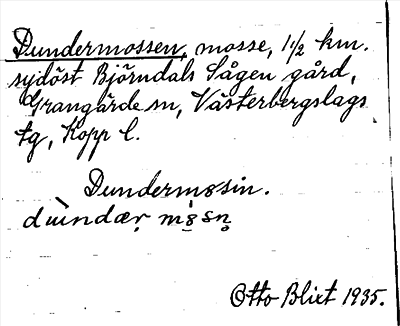 Dundermossen, mosse, 1 1/2 km.
sydöst Björndals Sågen gård,
Grangärde sn, Västerbergslags
tg, Kopp l.
Dundermosin.
Otto Blixt 1935.